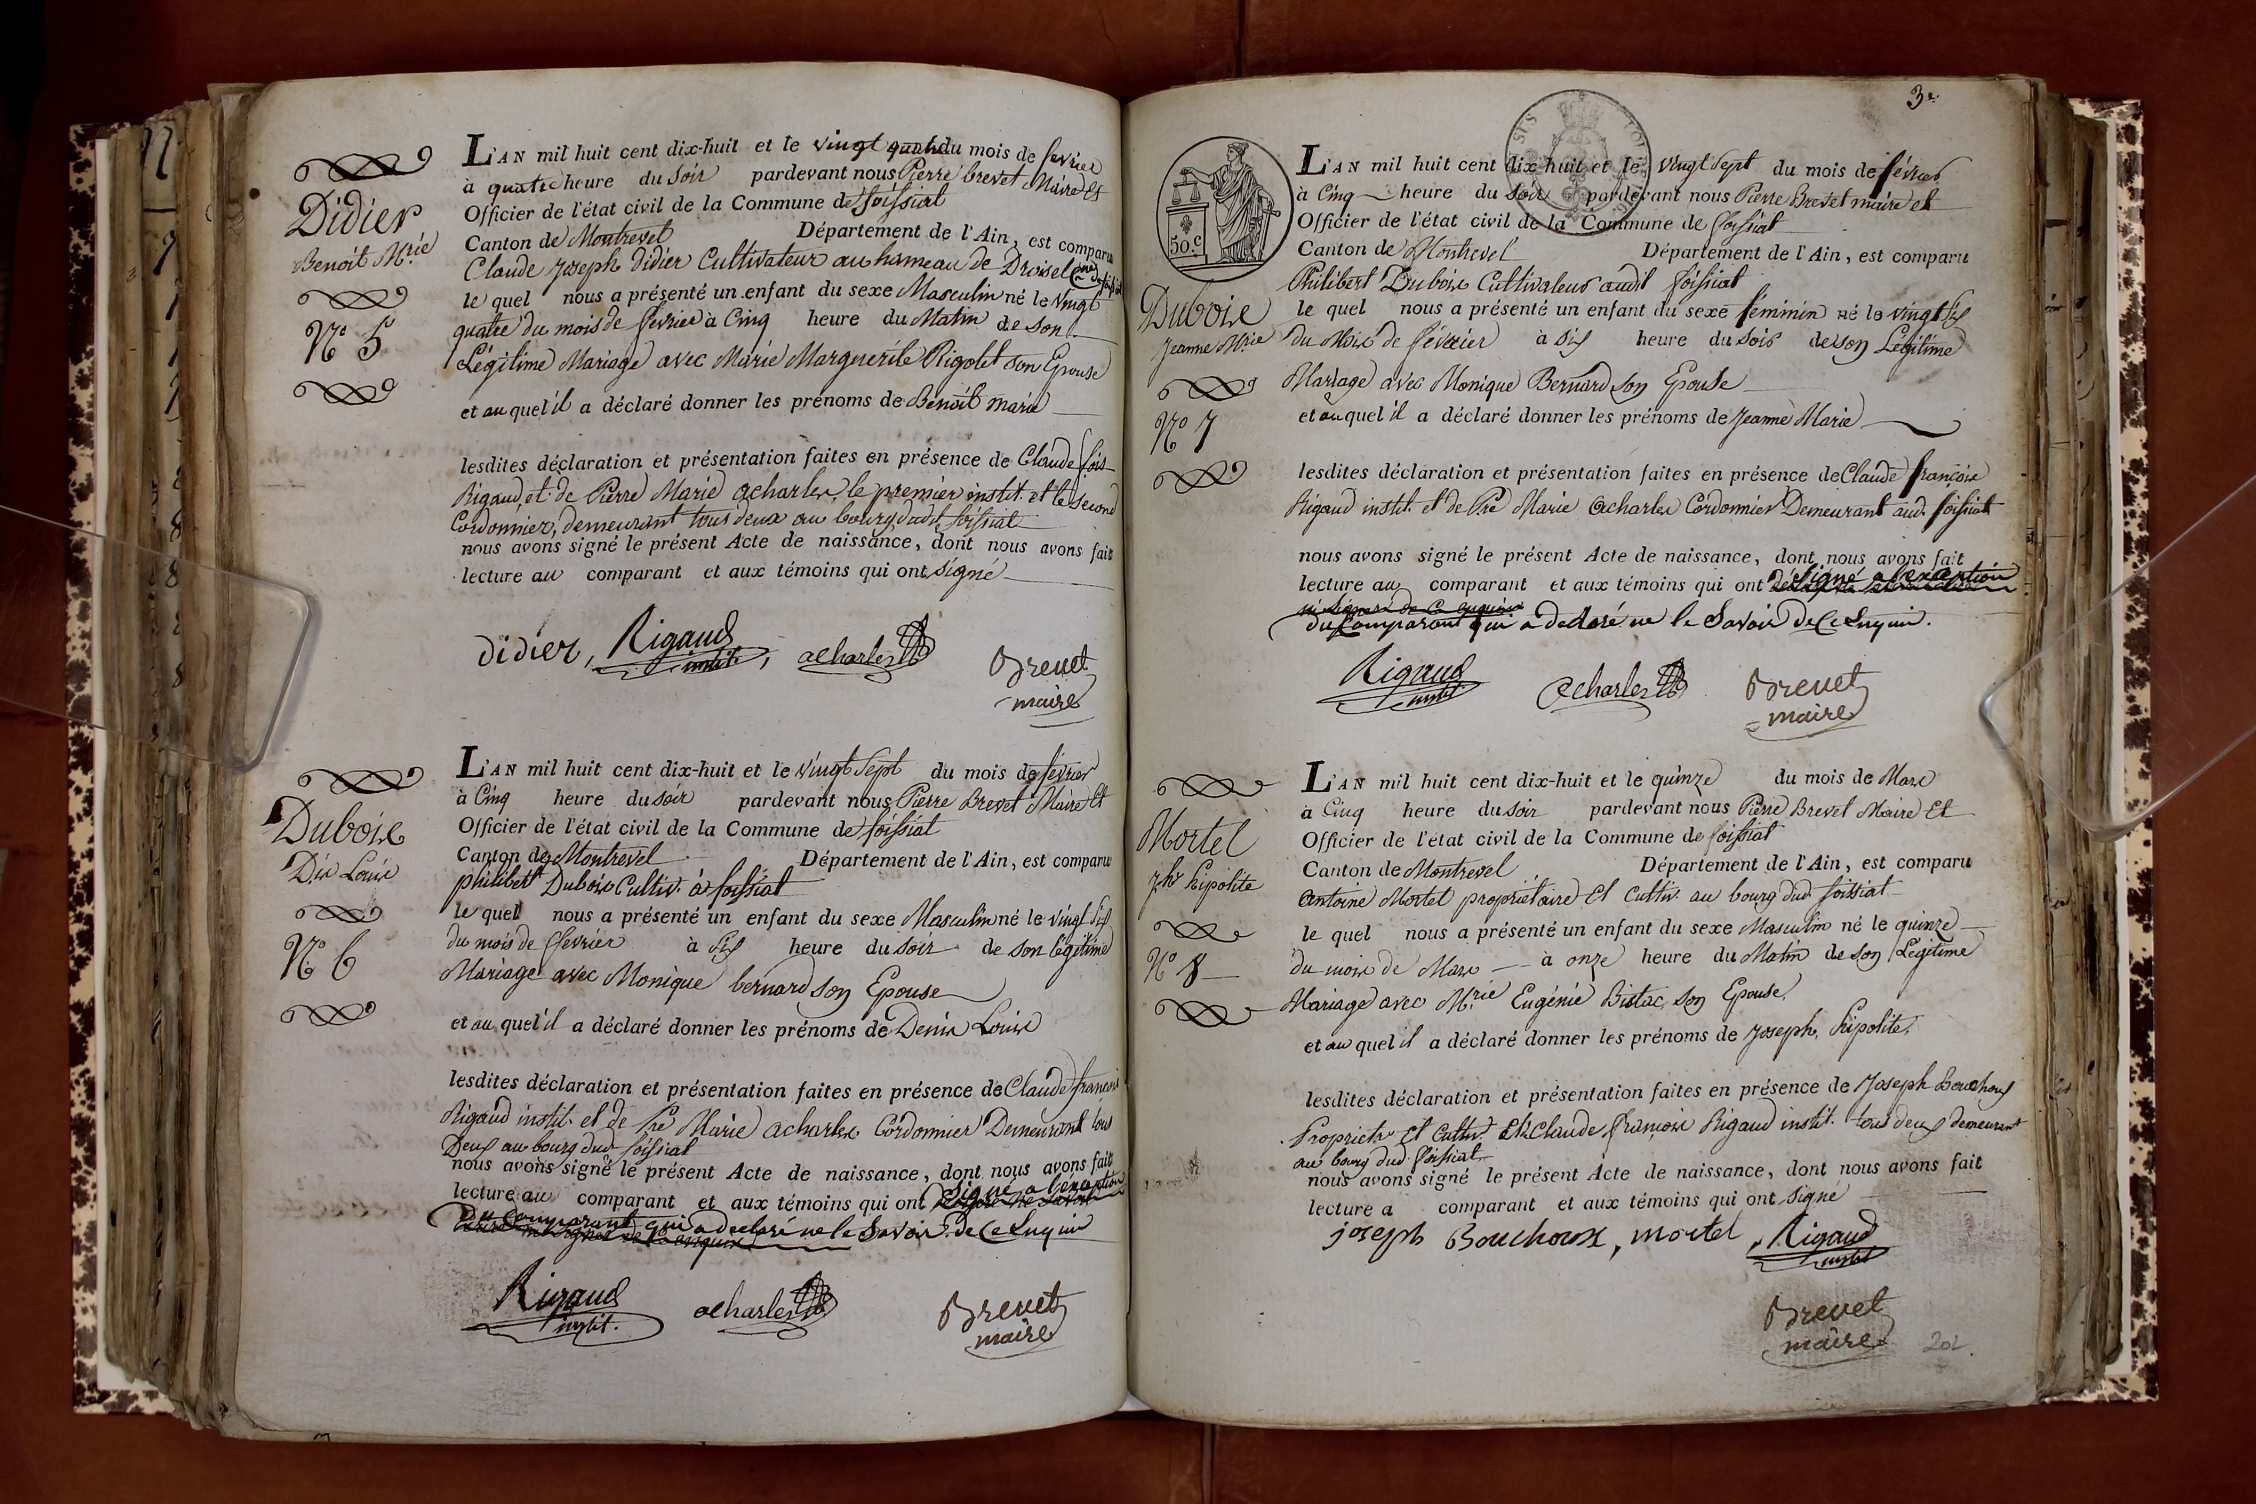 Didier
Benoit M.rie
N.o 5
L'AN mil huit cent dix-huit et le vingt quatre du mois de fevrier
à quatre heure du soir pardevant nous Pierre brevet Maire Et
Officier de l'état civil de la Commune de foissiat
Canton de Montrevel Département de l'Ain, est comparu
Claude Joseph didier Cultivateur au hameau de Droisel
le quel nous a présenté un enfant du sexe Masculin né le vingt
quatre du mois de fevrier à Cinq heure du Matin de son
Légitime Mariage avec Marie Marguerite Rigolet son Epouse
et au quel il a déclaré donner les prénoms de Benoit marie
lesdites déclaration et présentation faites en présence de Claude fois
Rigaud, et de Pierre Marie acharles, le premier instit. et le second
Cordonnier, demeurant tous deux au bourg dudit foissiat
nous avons signé le présent Acte de naissance, dont nous avons fait
lecture au comparant et aux témoins qui ont signé
didier, Rigaud instit. , acharles
Brevet
maire
Duboix
Dix Louix
N.o 6
L'AN mil huit cent dix-huit et le vingt Sept du mois de fevrier
à Cinq heure du soir pardevant nous Pierre Brevet Maire Et
Officier de l'état civil de la Commune de foissiat
Canton de Montrevel Département de l'Ain, est comparu
philibert Duboix Cultiv. à foissiat
le quel nous a présenté un enfant du sexe Masculin né le vingt Six
du mois de fevrier à Six heure du soir de son légitime
Mariage avec Monique bernard son Epouse
et au quel il a déclaré donner les prénoms de Denix Louix
lesdites déclaration et présentation faites en présence de Claude françois
Rigaud instit. et de Pre Marie acharles Cordonnier Demeurant tous
Deux au bourg dud. foissiat
nous avons signé le présent Acte de naissance, dont nous avons fait
lecture au comparant et aux témoins qui ont signé a lexception
du Comparant qui a declaré ne le Savoir de Ce Enquis
Rigaud
instit.
acharles
Brevet
maire
3e
SIS
TOU
50.c
Duboix
Jeanne M.rie
N.o 7
L'AN mil huit cent dix-huit et le vingt Sept du mois de février
à Cinq heure du soir pardevant nous Pierre Brevet maire et
Officier de l'état civil de la Commune de foissiat
Canton de Montrevel Département de l'Ain, est comparu
Philibert Duboix Cultivateur audit foissiat
le quel nous a présenté un enfant du sexe féminin né le vingt Six
du Moix de février à Six heure du soir de son Légitime
Mariage avec Monique Bernard son Epouse
et au quel il a déclaré donner les prénoms de Jeanne Marie
lesdites déclaration et présentation faites en présence de Claude françoix
Rigaud instit. et de Pre Marie acharles Cordonnier Demeurant aud. foissiat
nous avons signé le présent Acte de naissance, dont nous avons fait
lecture au comparant et aux témoins qui ont signé a lexception
du Comparant qui a declaré ne le Savoir de Ce Enquis.
Rigaud
instit.
acharles
Brevet
maire
Mortel
jph hipolite
N.o 8
L'AN mil huit cent dix-huit et le quinze du mois de Marx
à Cinq heure du soir pardevant nous Pierre Brevet Maire Et
Officier de l'état civil de la Commune de foissiat
Canton de Montrevel Département de l'Ain, est comparu
antoine Mortel propriétaire Et Cultiv. au bourg dud. foissiat
le quel nous a présenté un enfant du sexe Masculin né le quinze
du moix de Marx à onze heure du Matin de son Légitime
Mariage avec M.rie Eugénie Bistac, son Epouse,
et au quel il a déclaré donner les prénoms de Joseph, hipolite.
lesdites déclaration et présentation faites en présence de Joseph Bouchoux
Propriet.re Et Cultiv. Et Claude françoix Rigaud instit. tous deux demeurant
au bourg dud. foissiat
nous avons signé le présent Acte de naissance, dont nous avons fait
lecture a comparant et aux témoins qui ont signé
joseph Bouchoux, mortel, Rigaud
instit
Brevet
maire
202.